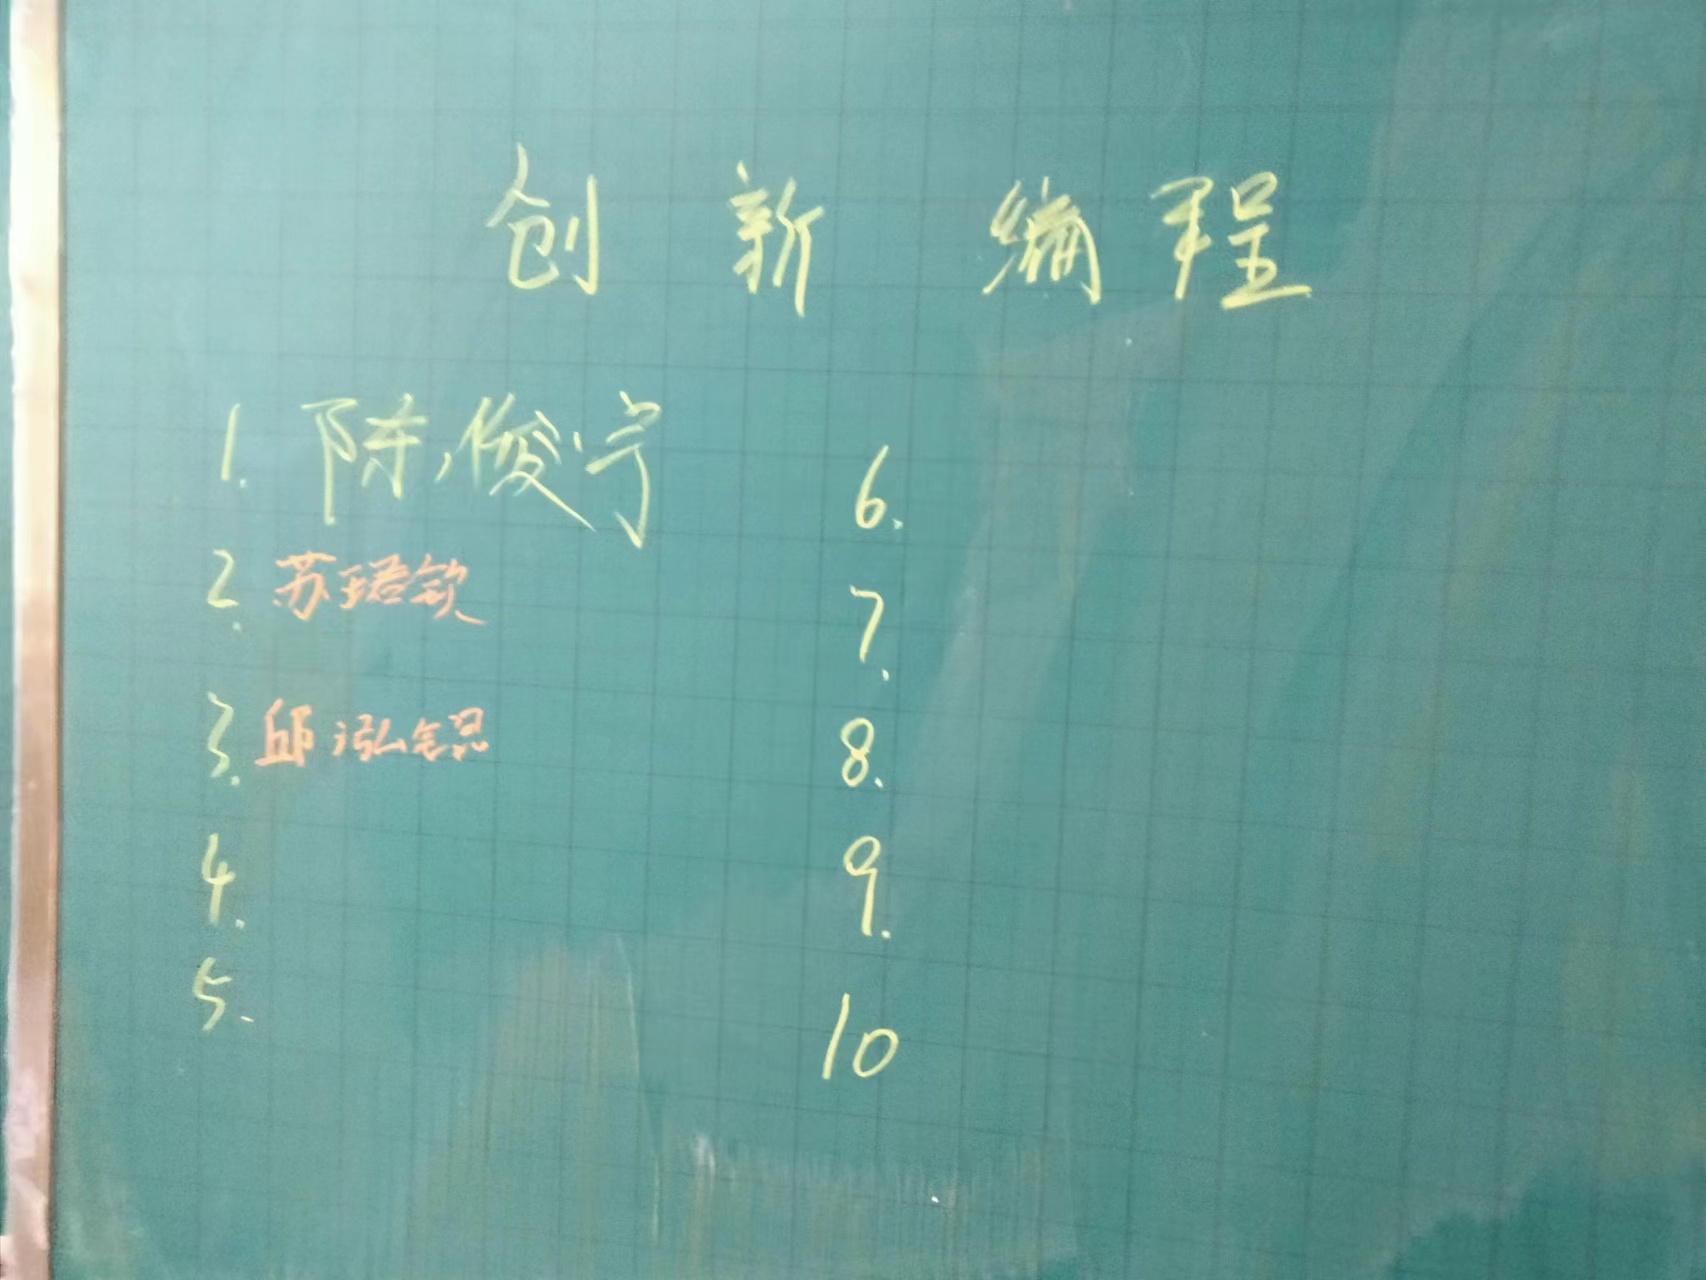 创新编程
1. 陈俊宁
2. 苏珺钦
3. 邱泓锟
4.
5.
6.
7.
8.
9.
10